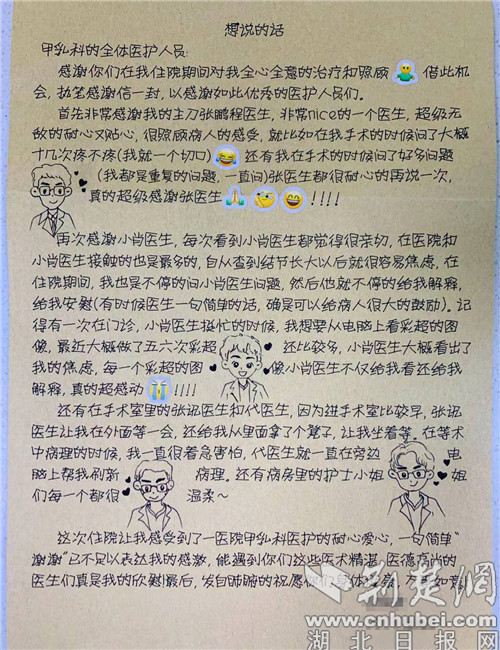 想说的话
甲乳科的全体医护人员:
感谢你们在我住院期间对我全心全意的治疗和照顾 借此机
会, 执笔感谢信一封, 以感谢如此优秀的医护人员们。
首先非常感谢我的主刀张鹏程医生, 非常nice的一个医生, 超级无
敌的耐心又贴心, 很照顾病人的感受, 就比如在我手术的时候问了大概
十几次疼不疼(我就一个切口) 还有我在手术的时候问了好多问题
(我都是重复的问题, 一直问)张医生都很耐心的再说一次,
真的超级感谢张医生 !!!!
再次感谢小肖医生, 每次看到小肖医生都觉得很亲切, 在医院和
小肖医生接触的也是最多的, 自从查到结节长大以后就很容易焦虑, 在
住院期间, 我也是不停的问小肖医生问题, 然后他就不停的给我解释,
给我安慰(有时候医生一句简单的话, 确是可以给病人很大的鼓励)。记
得有一次在门诊, 小肖医生挺忙的时候, 我想要从电脑上看彩超的图
像, 最近大概做了五六次彩超 还比较多, 小肖医生大概看出了
我的焦虑, 每一个彩超的图 像小肖医生不仅给我看还给我
解释, 真的超感动 !!!!
还有在手术室里的张迅医生和代医生, 因为进手术室比较早, 张迅
医生让我在外面等一会, 还给我从里面拿了个凳子, 让我坐着等。在等术
中病理的时候, 我一直很着急害怕, 代医生就一直在旁边 电
脑上帮我刷新 病理。还有病房里的护士小姐 姐
们每一个都很 温柔~
这次住院让我感受到了一医院甲乳科医护的耐心爱心, 一句简单"
谢谢"已不足以表达我的感激, 能遇到你们这些医术精湛, 医德高尚的
医生们真是我的欣慰!最后, 发自肺腑的祝愿你们身体 如意
荆楚网
www.cnhubei.com
湖北日报网